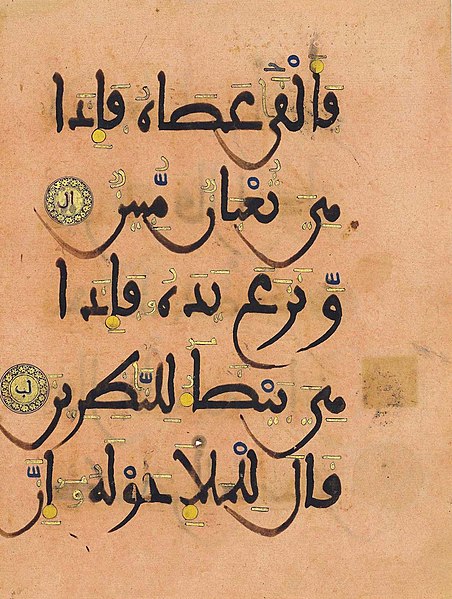 فَأَلْقَىٰ عَصَاهُ فَإِذَا
هِيَ ثُعْبَانٌ مُّبِينٌ لا
وَّنَزَعَ يَدَهُ فَإِذَا
هِيَ بَيْضَاءُ لِلنَّٰظِرِينَ لب
قَالَ لِلْمَلَإِ حَوْلَهُ إِنَّ